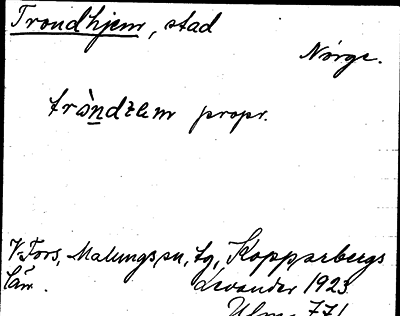 Trondhjem, stad
Norge.
tròndzem propr.
V. Fors, Malungs sn, tg, Kopparbergs
län. Levander 1923